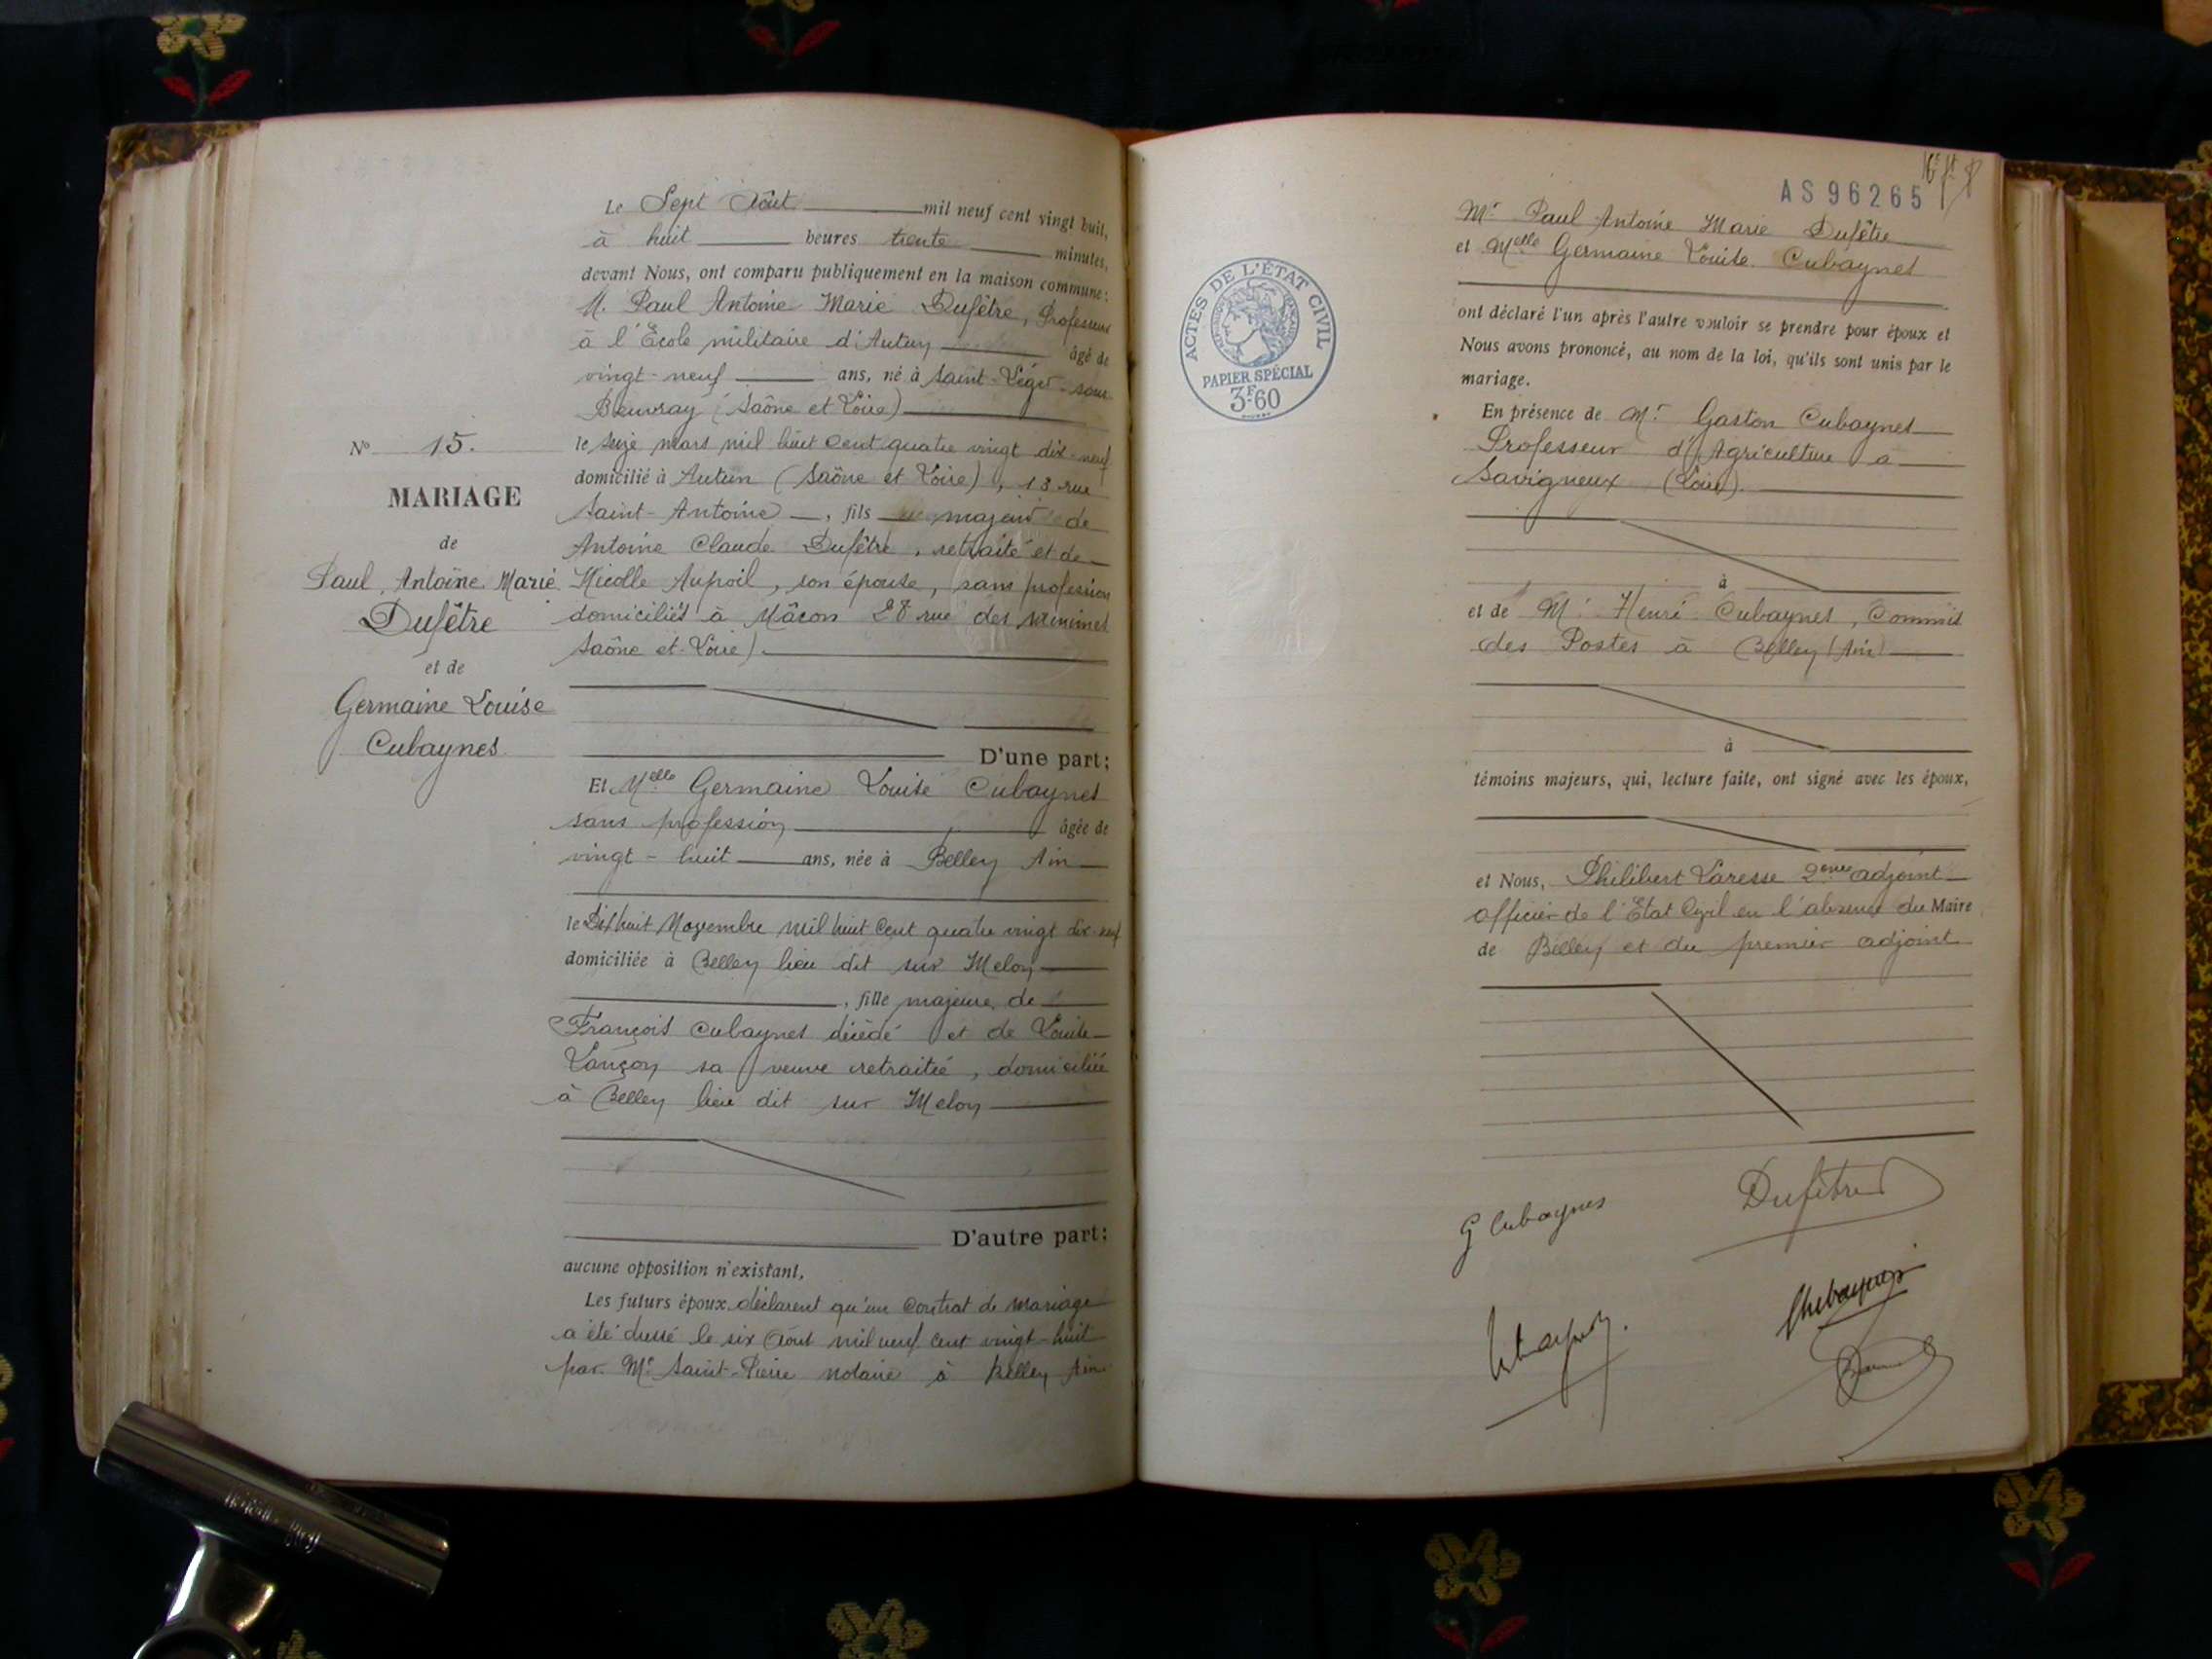 Le Sept Août mil neuf cent vingt huit,
à huit heures trente minutes,
devant Nous, ont comparu publiquement en la maison commune:
M. Paul Antoine Marie Dufêtre, Professeur
à l'École militaire d'Autun âgé de
vingt-neuf ans, né à Saint-Léger-sous-
Beuvray (Saône et Loire)
le seize mars mil huit cent quatre vingt dix-neuf
domicilié à Autun (Saône et Loire), 13 rue
Saint-Antoine, fils majeur de
Antoine Claude Dufêtre, retraité et de
Micolle Aupoil, son épouse, sans profession
domiciliés à Mâcon 28 rue des Minimes
Saône et Loire).
D'une part;
Et Melle Germaine Louise Cubaynes
sans profession âgée de
vingt-huit ans, née à Belley Ain
le Dix huit Novembre mil huit cent quatre vingt dix-neuf
domiciliée à Belley lieu dit sur Melon
, fille majeure de
François Cubaynes décédé et de Louise
Lançon sa veuve retraitée, domiciliée
à Belley lieu dit sur Melon
D'autre part;
aucune opposition n'existant,
Les futurs époux déclarent qu'un contrat de mariage
a été dressé le six Août mil neuf cent vingt-huit
par Me Saint-Pierre notaire à Belley Ain
No 15.
MARIAGE
de
Paul, Antoine Marie
Dufêtre
et de
Germaine Louise
Cubaynes
AS96265
ACTES DE L'ÉTAT CIVIL
RÉPUBLIQUE FRANÇAISE
PAPIER SPÉCIAL
3F.60
Mr Paul Antoine Marie Dufêtre
et Melle Germaine Louise Cubaynes
ont déclaré l'un après l'autre vouloir se prendre pour époux et
Nous avons prononcé, au nom de la loi, qu'ils sont unis par le
mariage.
En présence de Mr Gaston Cubaynes
Professeur d'Agriculture à
Savigneux (Loire).
à
et de Mr Henri Cubaynes, Commis
des Postes à Belley (Ain)
à
témoins majeurs, qui, lecture faite, ont signé avec les époux,
et Nous, Philibert Laresse 2eme adjoint
officier de l'Etat Civil en l'absence du Maire
de Belley et du premier adjoint
G Cubaynes
Dufêtre